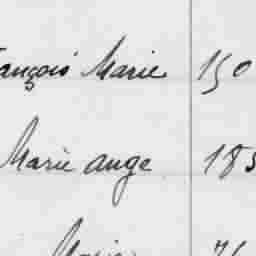 ançois Marie 150
Marie ange 185
Marie 76